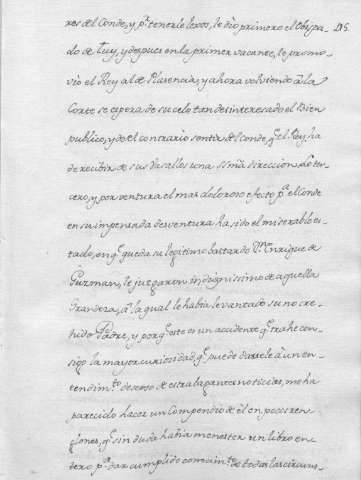 res del Conde, y pª tenerle lexos, le dio primero el Obispa- 215.
do de Tuy, y despues en la primer vacante, le promo-
vio el Rey al de Plasencia, y ahora volviendo a la
Corte se espera de su celo tan desinteresado el bien
publico, y de el contrario sentir del Conde, q.e el Rey, ha
de recibir de sus Vasallos una direccion. Lo ter-
cero, y por ventura el mas doloroso efecto pª el Conde
en su impensada desventura ha sido el miserable es-
tado, en q.e queda su legitimo bastardo Dn. Enrique de
Guzman, le juzgaron indignissimo de aquella
Grandeza, a la qual le habia levantado su no cre-
hido Padre, y porq.e este es un accidente q.e trahe con-
sigo la mayor curiosidad, q.e puede darsele a un en-
tendim.to deseoso de extravagantes noticias, me ha
parecido hacer un Compendio de el en pocos ren-
glones, q.e sin duda habia menester un libro en-
tero pª dar cumplido conocim.to de todas las circuns-